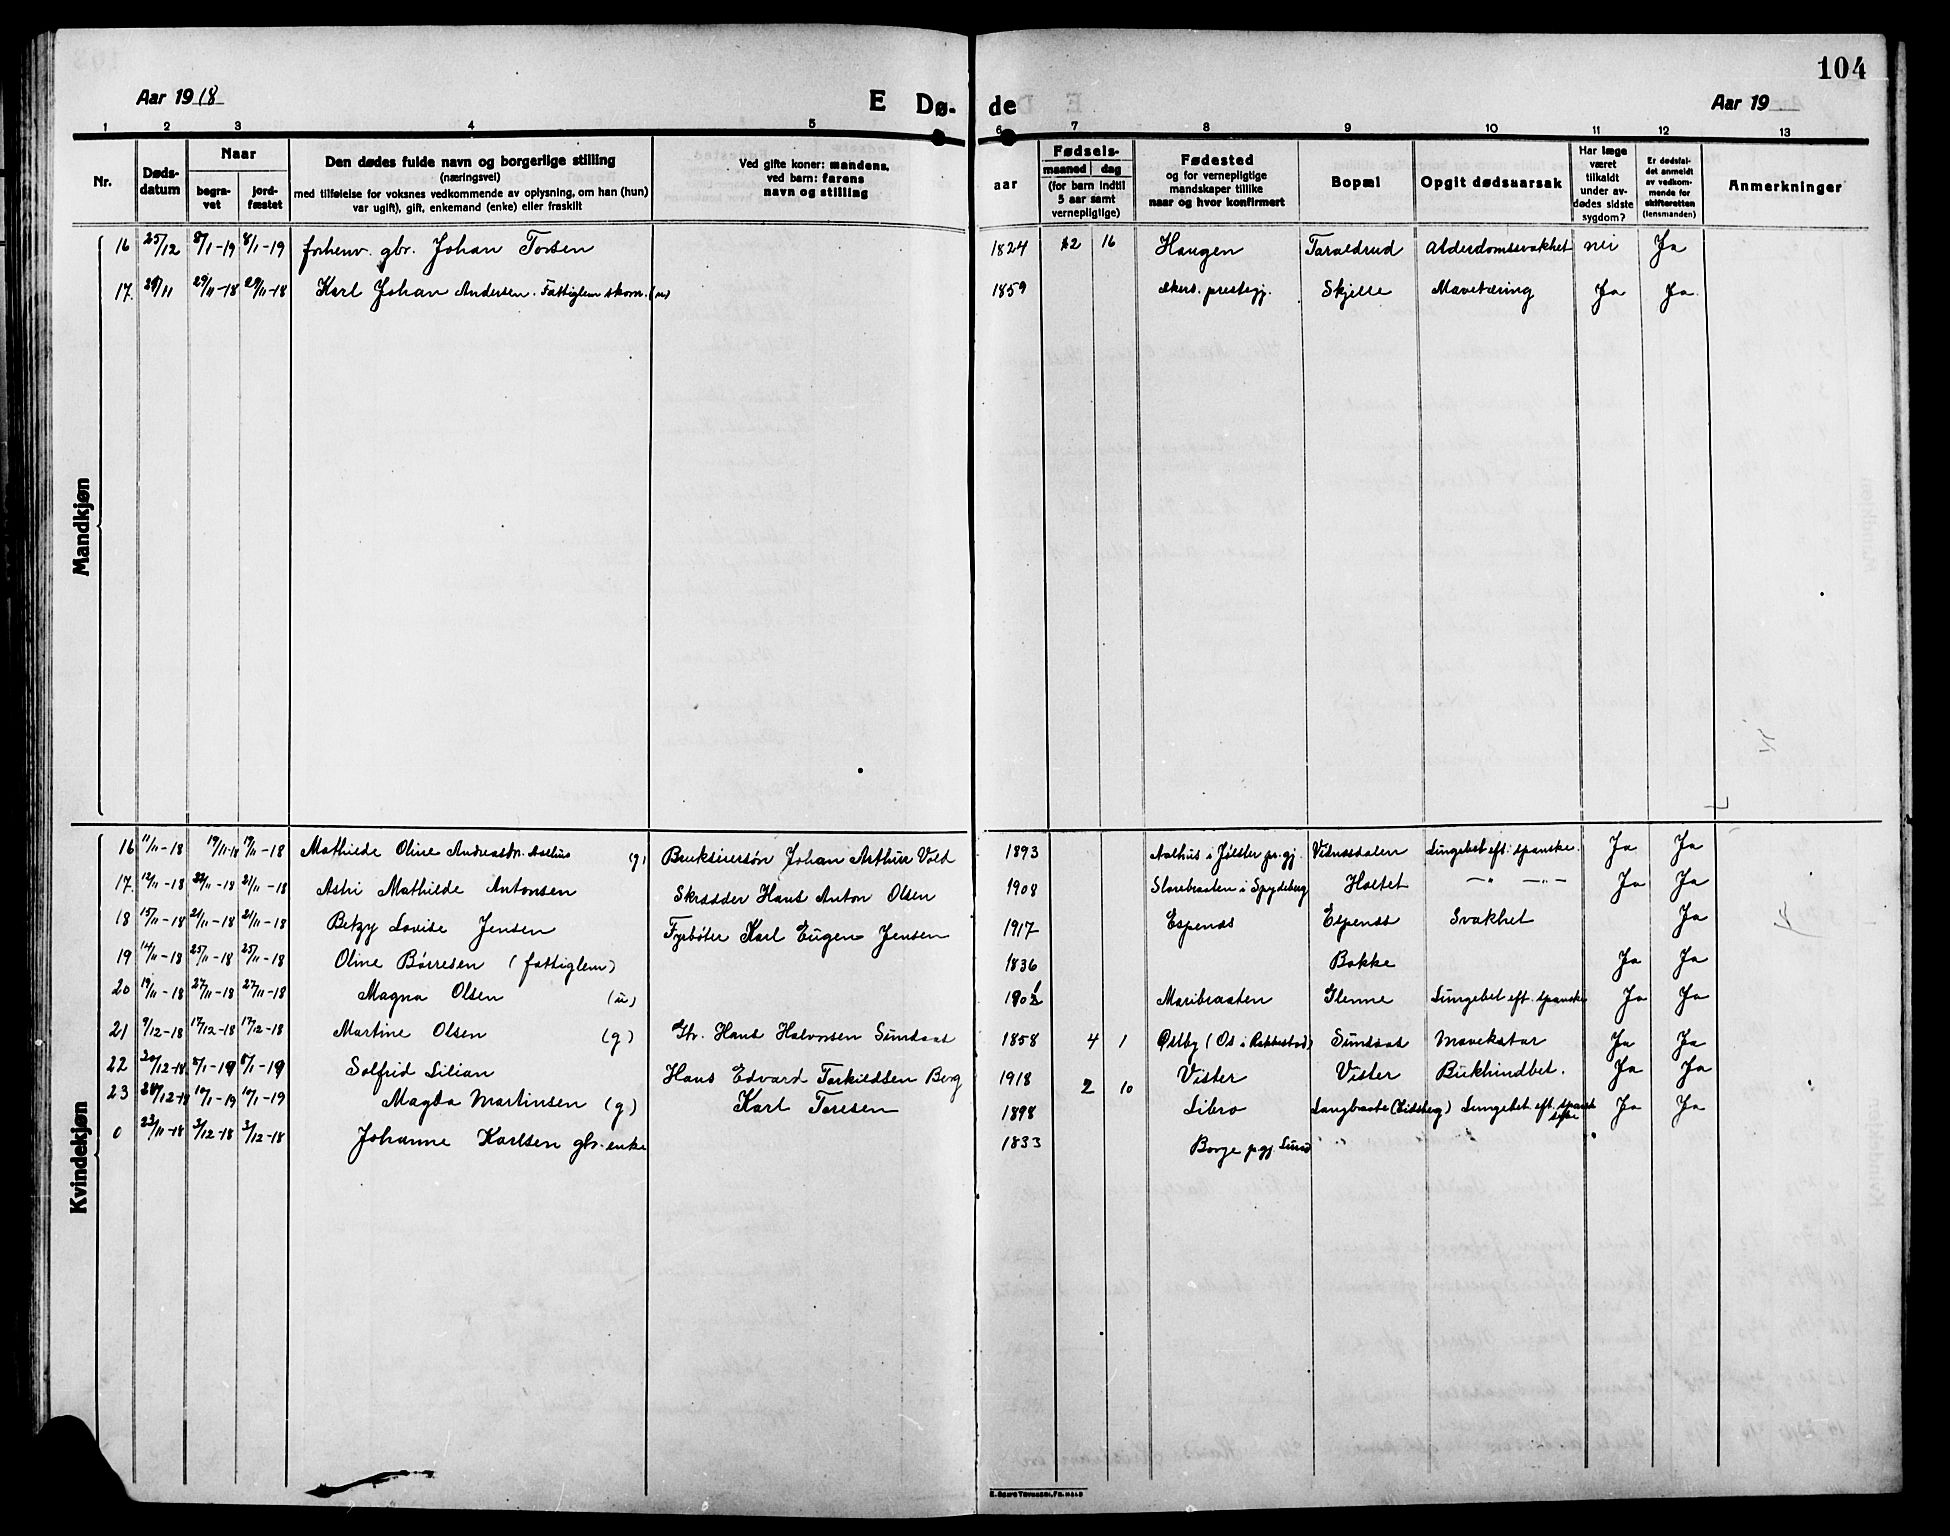 104
Aar 1918 E Dø- de Aar 19
1 2 3 4 5 6 7 8 9 10 11 12 13
Nr.
Døds-
datum
Naar
begra-
vet
jord-
fæstet
Den dødes fulde navn og borgerlige stilling
(næringsvei)
med tilføielse for voksnes vedkommende av oplysning, om han (hun)
var ugift), gift, enkemand (enke) eller fraskilt
Ved gifte koner: mandens,
ved barn: farens
navn og stilling
aar
Fødsels-
maaned dag
(for barn indtil
5 aar samt
vernepligtige)
Fødested
og for vernepligtige
mandskaper tillike
naar og hvor konfirmert
Bopæl
Opgit dødsaarsak
Har læge
været
tilkaldt
under av-
dødes sidste
sygdom?
Er dødsfal-
det anmeldt
av vedkom-
mende for
skifteretten
(lensmanden)
Anmerkninger
Mandkjøn
16 25/12 8/1-19 8/1-19 forhenv. gbr. Johan Torsen 1824 12 16 Haugen Taraldrud Alderdomssvakhet nei Ja
17. 29/11-18 29/11-18 Karl Johan Andersen. Fattiglem skom. (u) 1859 Akers. prestegj. Skjelle Mavetæring Ja Ja.
Kvindekjøn
16 11/11-18 19/11-18 19/11-18 Mathilde Oline Andreasdr. Aalhus (g) Bruksirersøn Johan Arthur Vold 1893 Aalhus i Jølster pr.gj. Lungebet. eft. spanske. Ja Ja
17. 12/11-18 22/11-18 21/11-18 Astri Mathilde Antonsen Skrædder Hans Anton Olsen 1908 i Spydeberg Holtet —"— —"— Ja Ja
18 15/11-18 21/11-18 21/11-18 Betzy Lovise Jensen Fyrbøter Karl Eugen Jensen 1917 Espenæs Espenæs Svakhet Ja
19 14/11-18 25/11-18 25/11-18 Oline Børresen (fattiglem) 1836 Bakke Ja Ja
20 19/11-18 27/11-18 27/11-18 Magna Olsen (u) 1901 Maribraaten Glenne Lungebet eft. spanske Ja Ja
21 9/12-18 17/12-18 17/12-18 Martine Olsen (g) Gbr. Hans Halvorsen Sundaas 1858 4 1 Østby (Os i Rakkestad) Sundaas Mavekatar Ja Ja
22 20/12-18 8/1-19 8/1-19 Solfrid Lilian Hans Edvard Torkildsen Berg 1918 2 10 Vister Vister Bukhindbet. Ja Ja
23 28/12-18 10/1-19 10/1-19 Magda Martinsen (g) Karl Toresen 1898 Libro Langbraate (Eidsberg) Lungebet eft. spanske syke Ja Ja
0 23/11-18 3/12-18 3/12-18 Johanne Karlsen gbr. enke 1833 Borge pgj. Lund